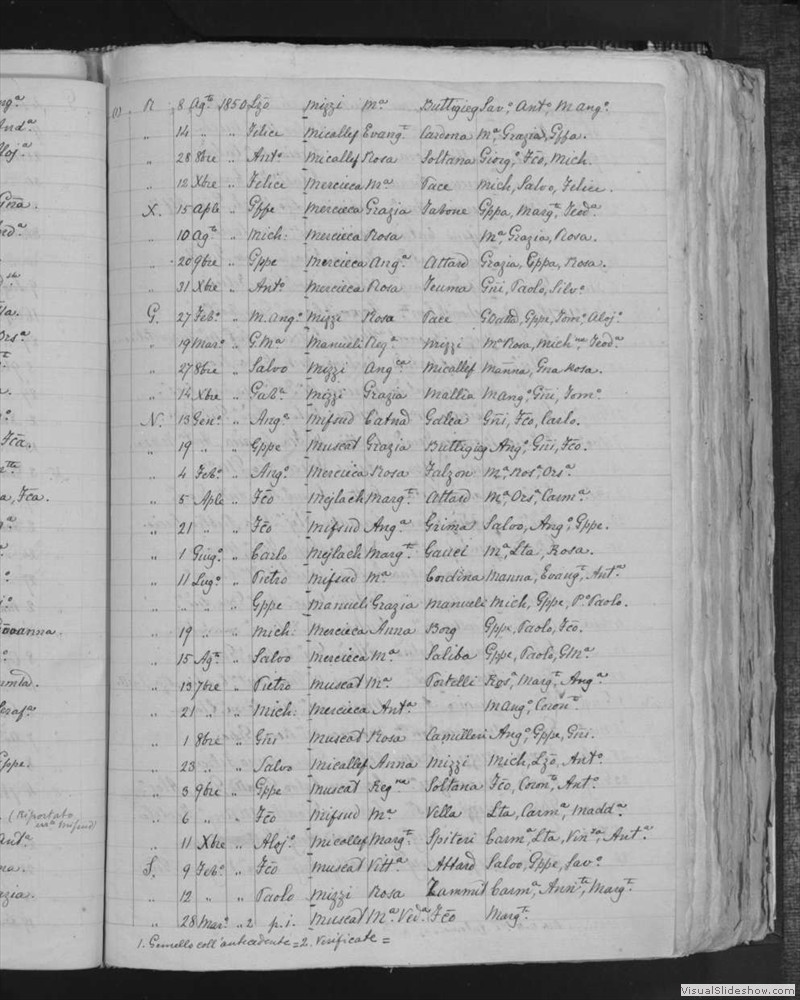 (1) R 8 Agto 1850 Lzo Mizzi Ma Buttigieg Savo, Anto, M Ango.
" 14 " " Felice Micallef Evangta Cardona Ma, Grazia, Gppa.
" 28 8bre " Anto Micallef Rosa Soltana Giorgo, Fco, Mich.
" 12 Xbre " Felice Mercieca Ma Pace Mich, Salvo, Felice.
X. 15 Aple " Gppe Mercieca Grazia Tabone Gppa, Margta, Teoda
" 10 Agto " Mich: Mercieca Rosa Ma, Grazia, Rosa.
" 20 9bre " Gppe Mercieca Anga Attard Grazia, Gppa, Rosa.
" 31 Xbre " Anto Mercieca Rosa Teuma Gni, Paolo, Silvo
G. 27 Febo " M. Ango Mizzi Rosa Pace Gppe, Tomo, Alojo
" 19 Maro " G. Ma Manueli Mizzi Ma Rosa, Teoda
" 27 8bre " Salvo Mizzi Angca Micallef Manna, Gna Rosa.
" 14 Xbre " Mizzi Grazia Mallia M Ango, Gni, Tomo.
N. 13 Geno " Ango Mifsud Catnd Galea Gni, Fco, Carlo.
" 19 " " Gppe Muscat Grazia Buttigieg Ango, Gni, Fco.
" 4 Febo " Ango Mercieca Rosa Falzon Ma, Rosa, Orsa
" 5 Aple " Fco Mejlach Margta Attard Ma, Orsa, Carma
" 21 " " Fco Mifsud Anga Grima Salvo, Ango, Gppe.
" 1 Giugo " Carlo Mejlach Margta Gauci Ma, Lta, Rosa.
" 11 Lugo " Pietro Mifsud Ma Cordina Manna, Evangta, Anta
" " " " Gppe Manueli Grazia Manueli Mich, Gppe, Po Paolo.
" 19 " " Mich: Mercieca Anna Borg Gppe, Paolo, Fco.
" 15 Agto " Salvo Mercieca Ma Saliba Gppe, Paolo, GMa
" 13 7bre " Pietro Muscat Ma Portelli Rosa, Margta, Anga
" 21 " " Mich: Mercieca Anta M ango, Corono
" 1 8bre " Gni Muscat Rosa Camilleri Ango, Gppe, Gni.
" 23 " " Salvo Micallef Anna Mizzi Mich, Lzo, Anto
" 3 9bre " Gppe Muscat Regna Soltana Fco, Corono, Anto
" 6 " " Fco Mifsud Ma Vella Lta, Carma, Madda
" 11 Xbre " Alojo Micallef Margta Spiteri Carma, Lta, Vinza, Anta
S. 9 Febo " Fco Muscat Vitta Attard Salvo, Gppe, Savo
" 12 " " Paolo Mizzi Rosa Zammit Carma, Annta, Margta
" 28 Maro " 2 p. i. Muscat Ma Veda Fco Margta
1. Gemello coll'antecedente = 2. Verificate =
(Riportato
Mifsud)
VisualSlideshow.com